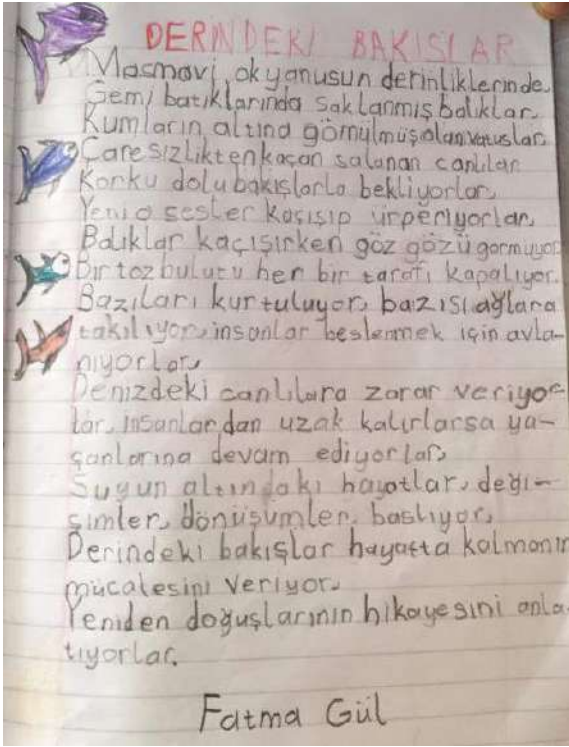 DERİNDEKİ BAKIŞLAR
Masmavi, okyanusun derinliklerinde,
Gemi batıklarında saklanmış balıklar,
Kumların altına gömülmüş olan vatuslar,
Çaresizlikten kaçan salanan canlılar
Korku dolu bakışlarla bekliyorlar,
sesler kaçışıp ürperiyorlar,
Balıklar kaçışırken göz gözü görmüyor
Bir toz bulutu her bir tarafı kapalıyor.
Bazıları kurtuluyor, bazısı ağlara
takılıyor, insanlar beslenmek için avla-
nıyorlar,
Denizdeki canlılara zarar veriyor-
lar, insanlardan uzak kalırlarsa ya-
şanlarına devam ediyorlar,
Suyun altındaki hayatlar, deği-
şimler, dönüşümler, başlıyor,
Derindeki bakışlar hayatta kalmanın
mücalesini veriyor.
Yeniden doğuşlarının hikayesini anla-
tıyorlar.
Fatma Gül